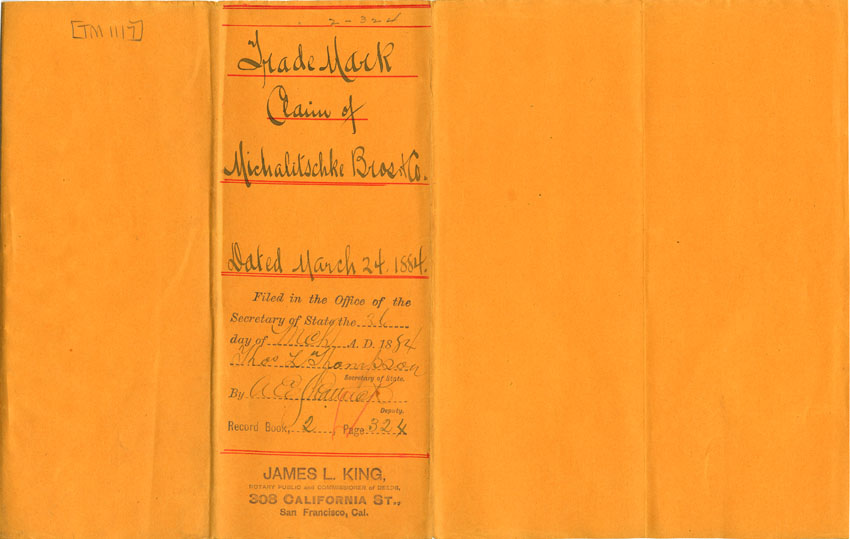 [TM 1117]
2-324
Trade Mark
Claim of
Michalitschke Bros & Co.
Dated March 24. 1884.
Filed in the Office of the
Secretary of State the 26
day of Mch A. D. 1884
Thos L Thompson
Secretary of State.
By
Deputy.
Record Book, 2 Page 324
JAMES L. KING,
NOTARY PUBLIC and COMMISSIONER of DEEDS,
308 CALIFORNIA ST.,
San Francisco, Cal.